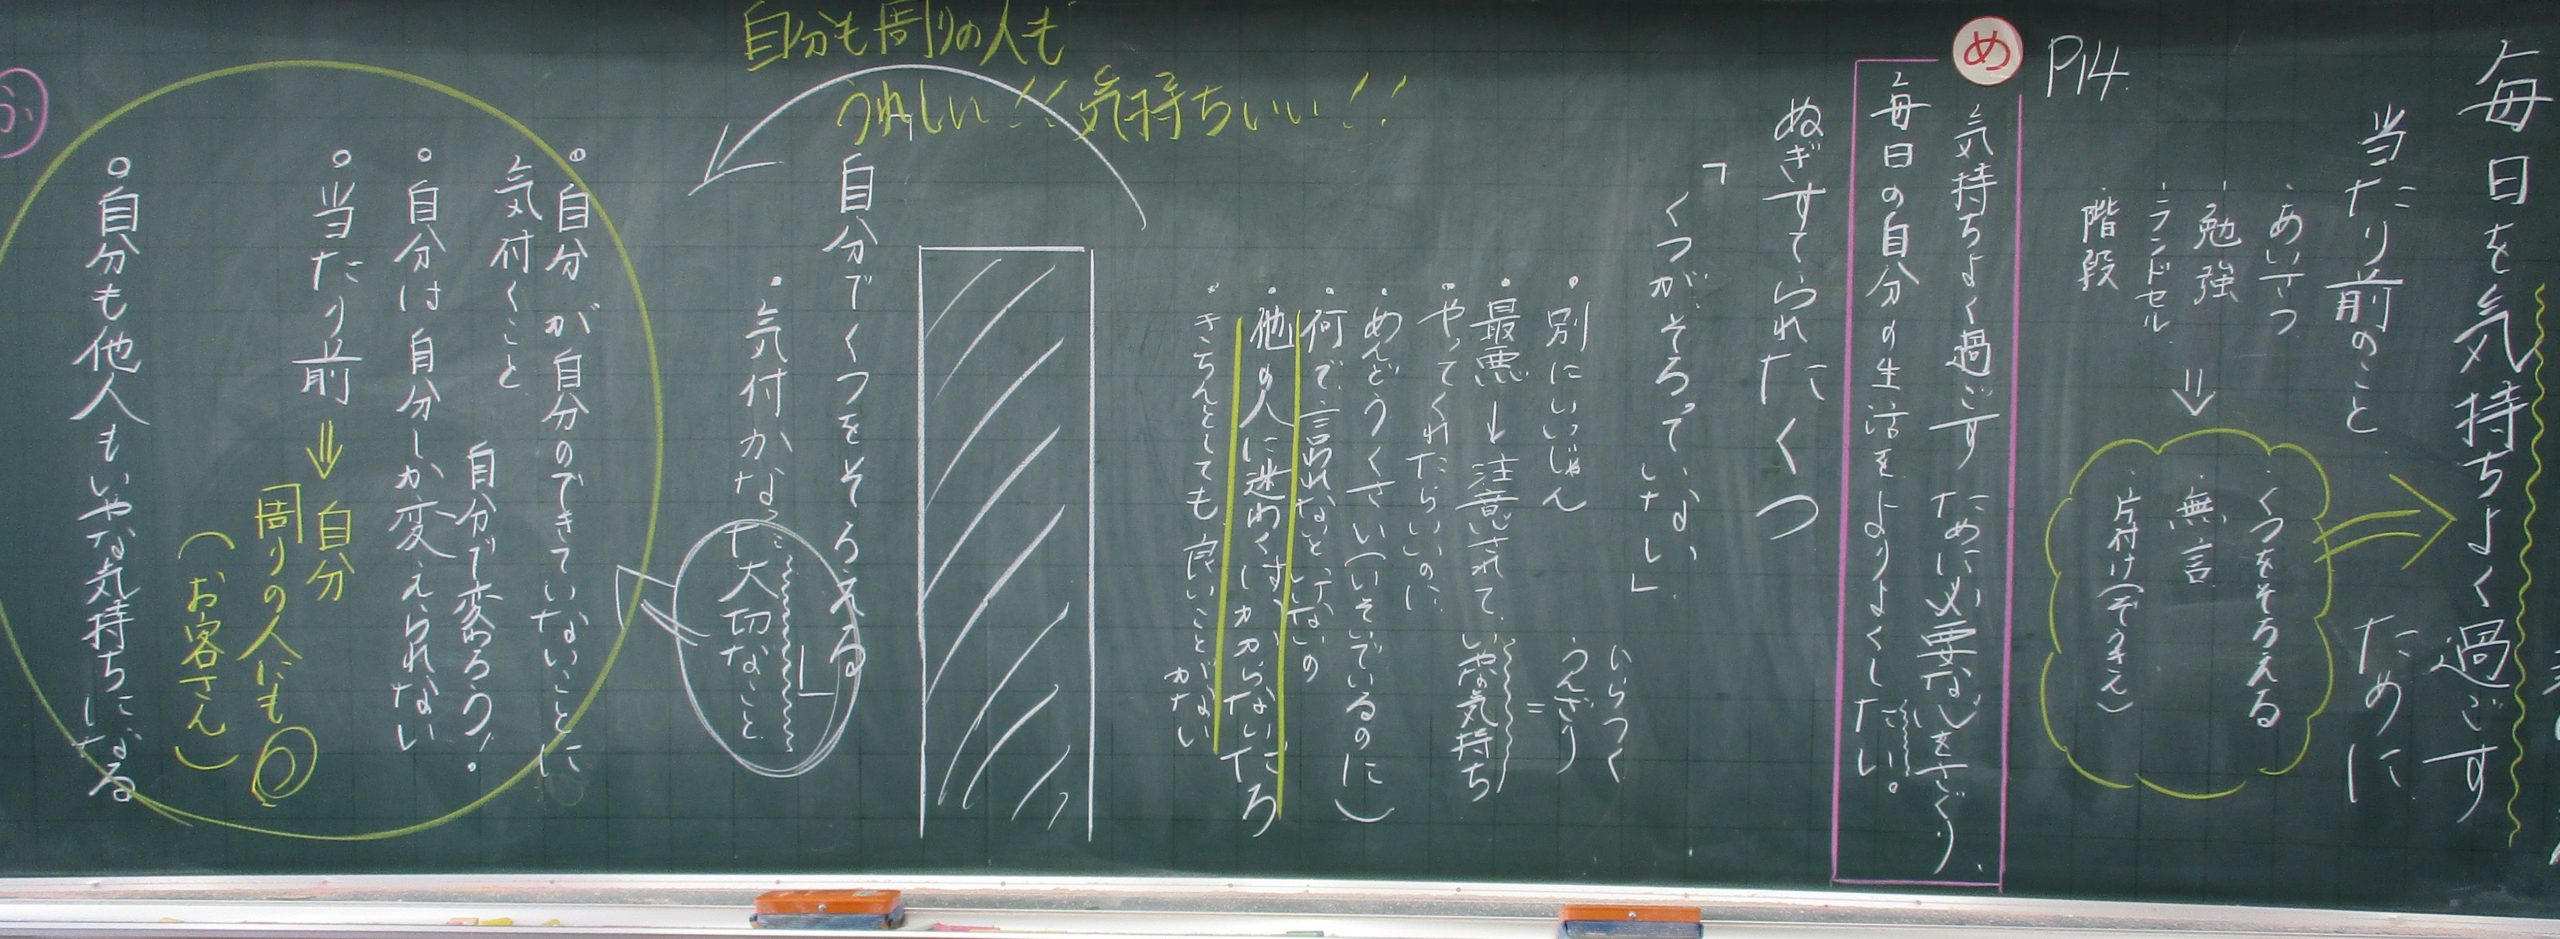 毎日を気持ちよく過ごす
ために
当たり前のこと
・あいさつ
・勉強
・ランドセル
・階段
・くつをそろえる
・無言
・片付け(ぞうきん)
P14
め
気持ちよく過ごすために必要な心をさぐり、
毎日の自分の生活をよりよくしたい。
ぬぎすてられたくつ
「くつがそろってない
したし」
いらつく
うんざり
=
・別にいいじゃん
・最悪→注意されて、いやな気持ち
・やってくれたらいいのに
めんどうくさい(いそいでいるのに)
・何で言われないといけないの
・他の人に迷わくはかからないだろ
・きちんとしても良いことがない
自分も周りの人も
うれしい!!気持ちいい!!
自分でくつをそろえる
・気付かなかった大切なこと
・自分が自分のできていないことに
気付くこと
自分で変わろう!
・自分は自分しか変えられない
・当たり前⇒自分
周りの人にも
(お客さん)
・自分も他人もいやな気持ちになる
ふ